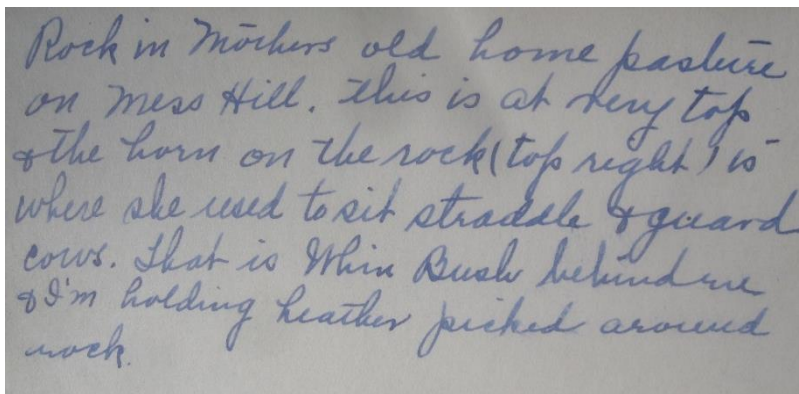 Rock in Mothers old home pasture
on Mess Hill. This is at very top
& the horn on the rock (top right) is
where she used to sit straddle & guard
cows. That is Whin Bush behind me
& I'm holding heather picked around
rock.